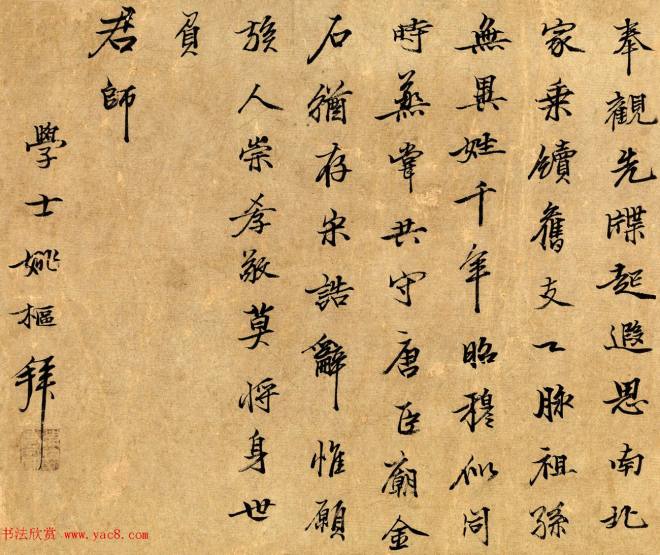 奉觀先牒起遐思南北
家乗續舊支一脉祖孫
無異姓千年昭穆似同
時蒸嘗共守唐臣廟金
石猶存宋誥辭惟願
族人崇孝敬莫將身世
負
君師
學士姚樞拜
书法欣赏 www.yac8.com